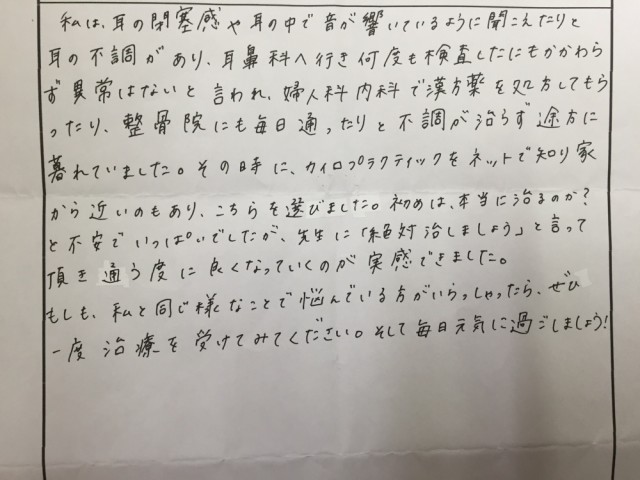 私は、耳の閉塞感や耳の中で音が響いているように聞こえたりと
耳の不調があり、耳鼻科へ行き何度も検査したにもかかわら
ず異常はないと言われ、婦人科内科で漢方薬を処方してもら
ったり、整骨院にも毎日通ったりと不調が治らず途方に
暮れていました。その時に、カイロプラクティックをネットで知り家
から近いのもあり、こちらを選びました。初めは、本当に治るのか?
と不安でいっぱいでしたが、先生に「絶対治しましょう」と言って
頂き通う度に良くなっていくのが実感できました。
もしも、私と同じ様なことで悩んでいる方がいらっしゃったら、ぜひ
一度治療を受けてみてください。そして毎日元気に過ごしましょう!